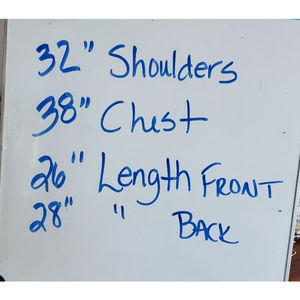 32" Shoulders
38" Chest
26" Length FRONT
28" " BACK